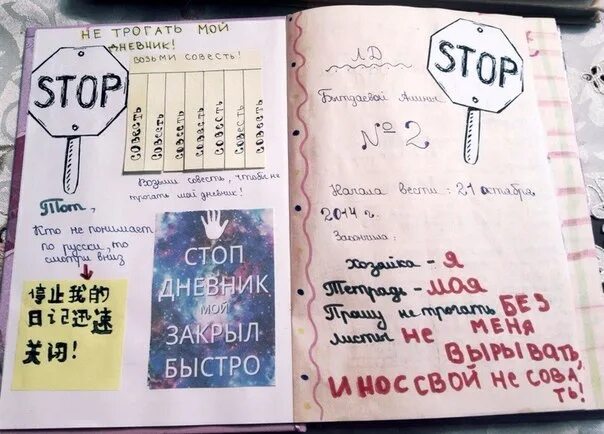 НЕ ТРОГАТЬ МОЙ
ДНЕВНИК!
ВОЗЬМИ СОВЕСТЬ!
STOP
СОВЕСТЬ
СОВЕСТЬ
СОВЕСТЬ
СОВЕСТЬ
СОВЕСТЬ
СОВЕСТЬ
СОВЕСТЬ
Возьми совесть, чтобы не
трогать мой дневник!
Тот,
Кто не понимает
по русски, то
смотри вниз
停止我的
日记迅速
关闭!
СТОП
ДНЕВНИК
МОЙ
ЗАКРЫЛ
БЫСТРО
STOP
ЛД
№ 2
Начала вести: 21 октября
2014 г.
Закончила:
Хозяйка - Я
Тетрадь - МОЯ
Прошу не трогать БЕЗ
МЕНЯ
листы не ВЫРЫВАТЬ,
И НОС СВОЙ НЕ СОВА
ТЬ!